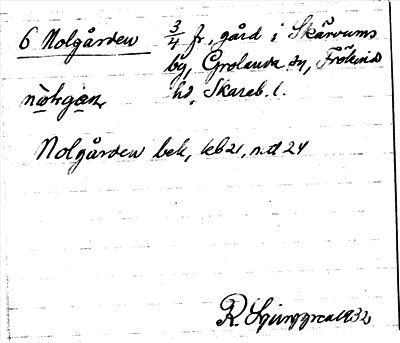 6 Nolgården 3/4 fr., gård i Skärvums
by, Grolanda sn, Frökind
hd, Skarab. l.
nòlgan
Nolgården bek, kb 21, nd 24
R. Ljunggren 1932